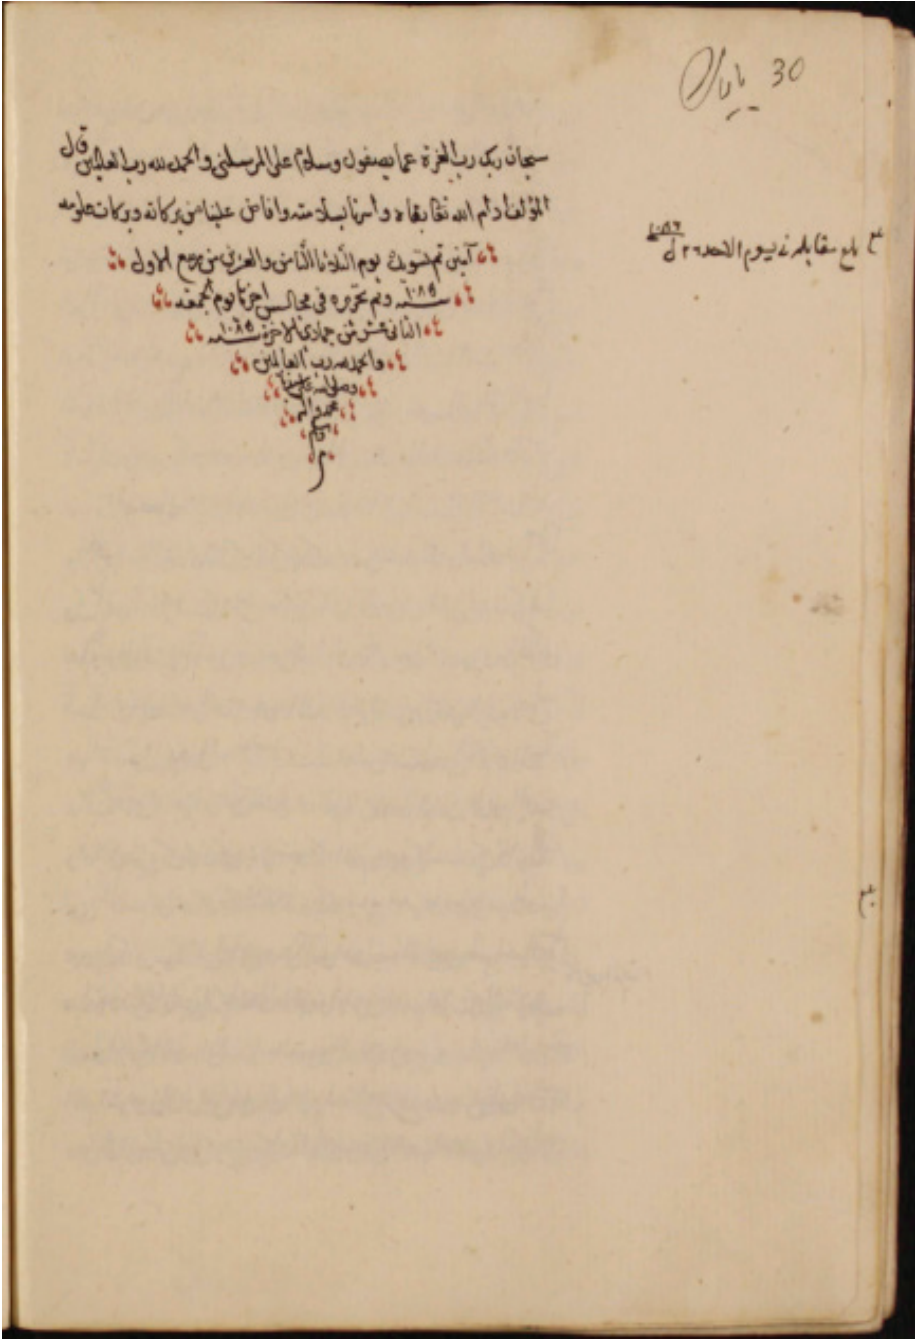 30
سبحان ربك رب العزة عما يصفون وسلام على المرسلين والحمد لله رب العالمين قال
المؤلف ادام الله تعالى بقاه وامتنا بسلامته وافاض علينا من بركاته وبركات علومه
آمين تم تسويده يوم الثلاثا الثامن والعشرين من ربيع الاول
سنة ١٠٨٥ وتم تحريره في مجالس اخرها يوم الجمعة
الثاني عشر من جمادى الاخرة سنة ١٠٨٥
والحمد لله رب العالمين
وصلى الله على سيدنا
محمد وآله
وسلم
م
بلغ مقابلة في يوم الاحد ٢٦
٣٠